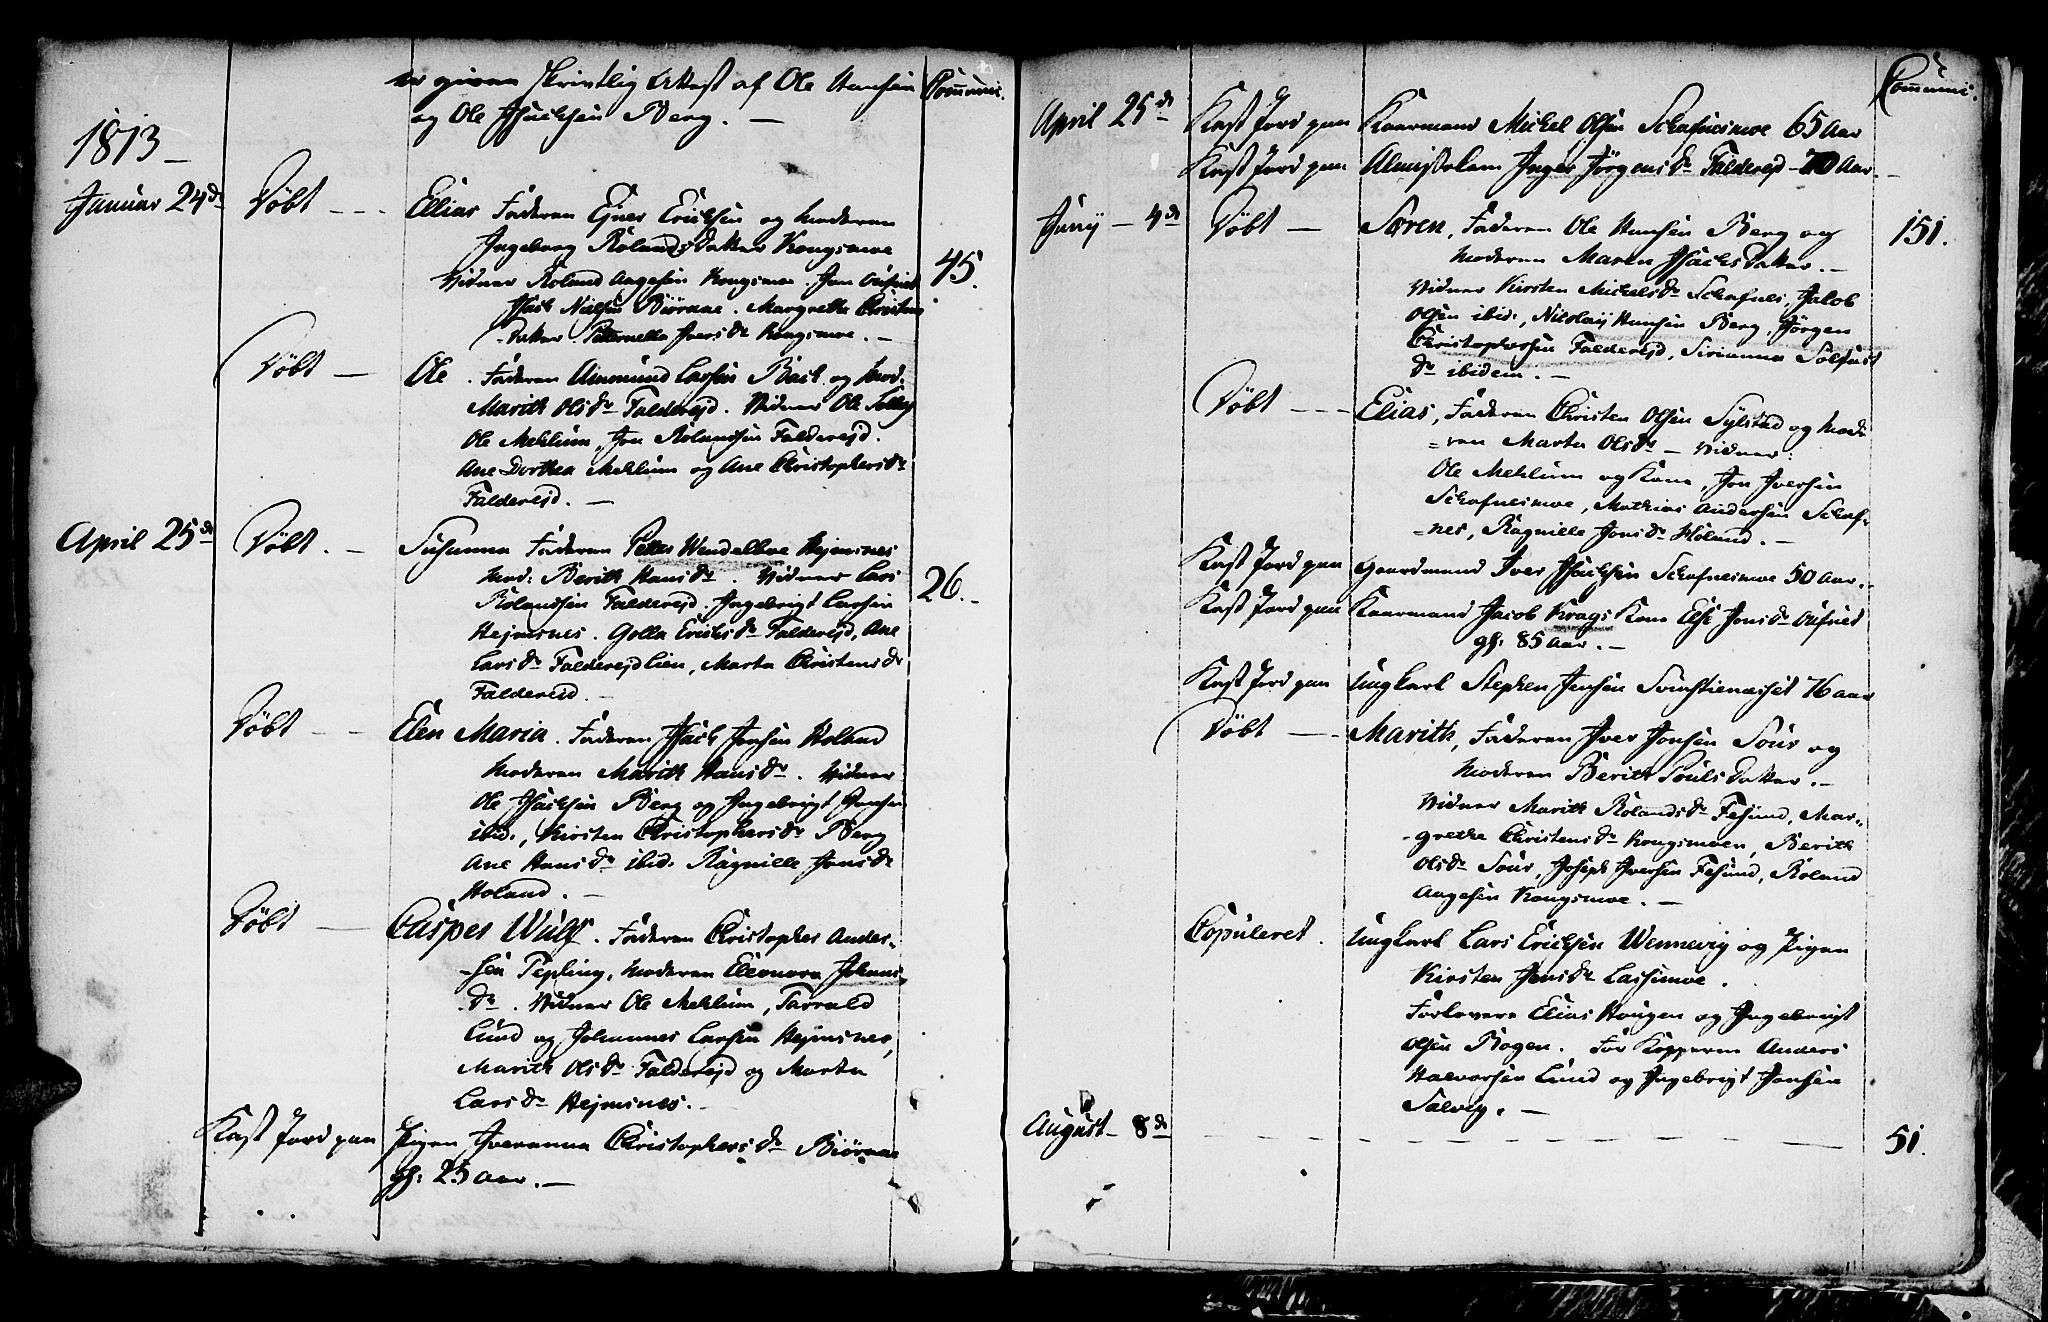 er given skrivtlig Attest af Ole Hansen
og Ole Isachsen Berg. —
Communi.
1813 —
Januar 24de Döbt — Elias Faderen Ejner Erichsen og Moderen
Ingeborg Rolands Datter Kongsmoe
Vidner Roland Aagesen Kongsmoe. Jon
Isach Nielsen Biörnae. Margrethe Christens
Datter Petternella Ivers Dr Kongsmoe. —
45.
Döbt — Ole. Faderen Ammund Larsen Bach og Mod:
Marith Ols Dr Falderejd. Vidner Ole
Ole Mehlum, Jon Rolandsen Falderejd.
Ane Dorthea Mehlum og Ane Christophers Dr
Falderejd. —
April 25de Döbt. — Susanna Faderen Petter Wendelboe Hejmsnes
Mod: Berith Hans Dr. Vidner Lars
Rolandsen Falderejd, Ingebrigt Larsen
Hejmsnes. Golla Erichs Dr Falderejd, Ane
Lars Dr Falderejdlien, Marta Christens Dr
Falderejd. —
26. —
Döbt — Elen Maria. Faderen Isach Jonsen Holand
Moderen Marith Hans Dr. Vidner
Ole Isachsen Berg og Ingebrigt Hansen
ibid., Kirsten Christophers Dr Berg
Ane Hans Dr ibid. Ragnille Jons Dr
Holand. —
Döbt — Casper Wulf. Faderen Christopher Ander-
-sen Tepling, Moderen Eleonora Johans
Dr. Vidner Ole Mehlum, Tarrald
Lund og Johannes Larsen Hejmsnes,
Marith Ols Dr Falderejd og Marta
Lars Dr Hejmsnes. —
Kast Jord paa Pigen Iveranna Christophers Dr Biörnae
gl: 25 Aar. —
Communi.
April 25de Kast Jord paa Kaarmand Michel Olsen Schafnesmoe 65 Aar
Kast Jord paa Almisselem Inger Jörgens Dr Falderejd 70 Aar. —
Junij — 4de Döbt — Søren, Faderen Ole Hansen Berg og
Moderen Maren Isachs Datter. —
151.
Vidner Kirsten Michels Dr Schafnes, Jacob
Olsen ibid., Nicolaij Hansen Berg, Jörgen
Christophersen Falderejd, Sirianna Solfast
Dr ibidem. —
Döbt — Elias, Faderen Christen Olsen Sylstad og Mode
-ren Marta Ols Dr — Vidner:
Ole Mehlum og Kone, Jon Iversen
Schafnesmoe, Mathias Andersen Schaf-
-nes, Ragnille Jons Dr Holand. —
Kast Jord paa Gaardmand Iver Isachsen Schafnesmoe 50 Aar. —
Kast Jord paa Kaarmand Jacob Krags Kone Else Jons Dr
gl: 85 Aar. —
Kast Jord paa Ungkarl Stephen Jensen 76 Aar
Döbt — Marith, Faderen Iver Jonsen Sour og
Moderen Berith Pouls Datter. —
Vidner Marith Rolands Dr Fesund, Mar-
-grethe Christens Dr Kongsmoen, Berith
Ols Dr Sour, Joseph Iversen Fesund, Roland
Aagesen Kongsmoe. —
Copuleret. Ungkarl Lars Erichsen Wennevig og Pigen
Kirsten Jens Dr Lassemoe.
Forlovere Elias Haugen og Ingebrigt
Olsen Bogen. For Kopperne Anders
Halvorsen Lund og Ingebrigt Jonsen
Salvig. —
August — 8de
51.